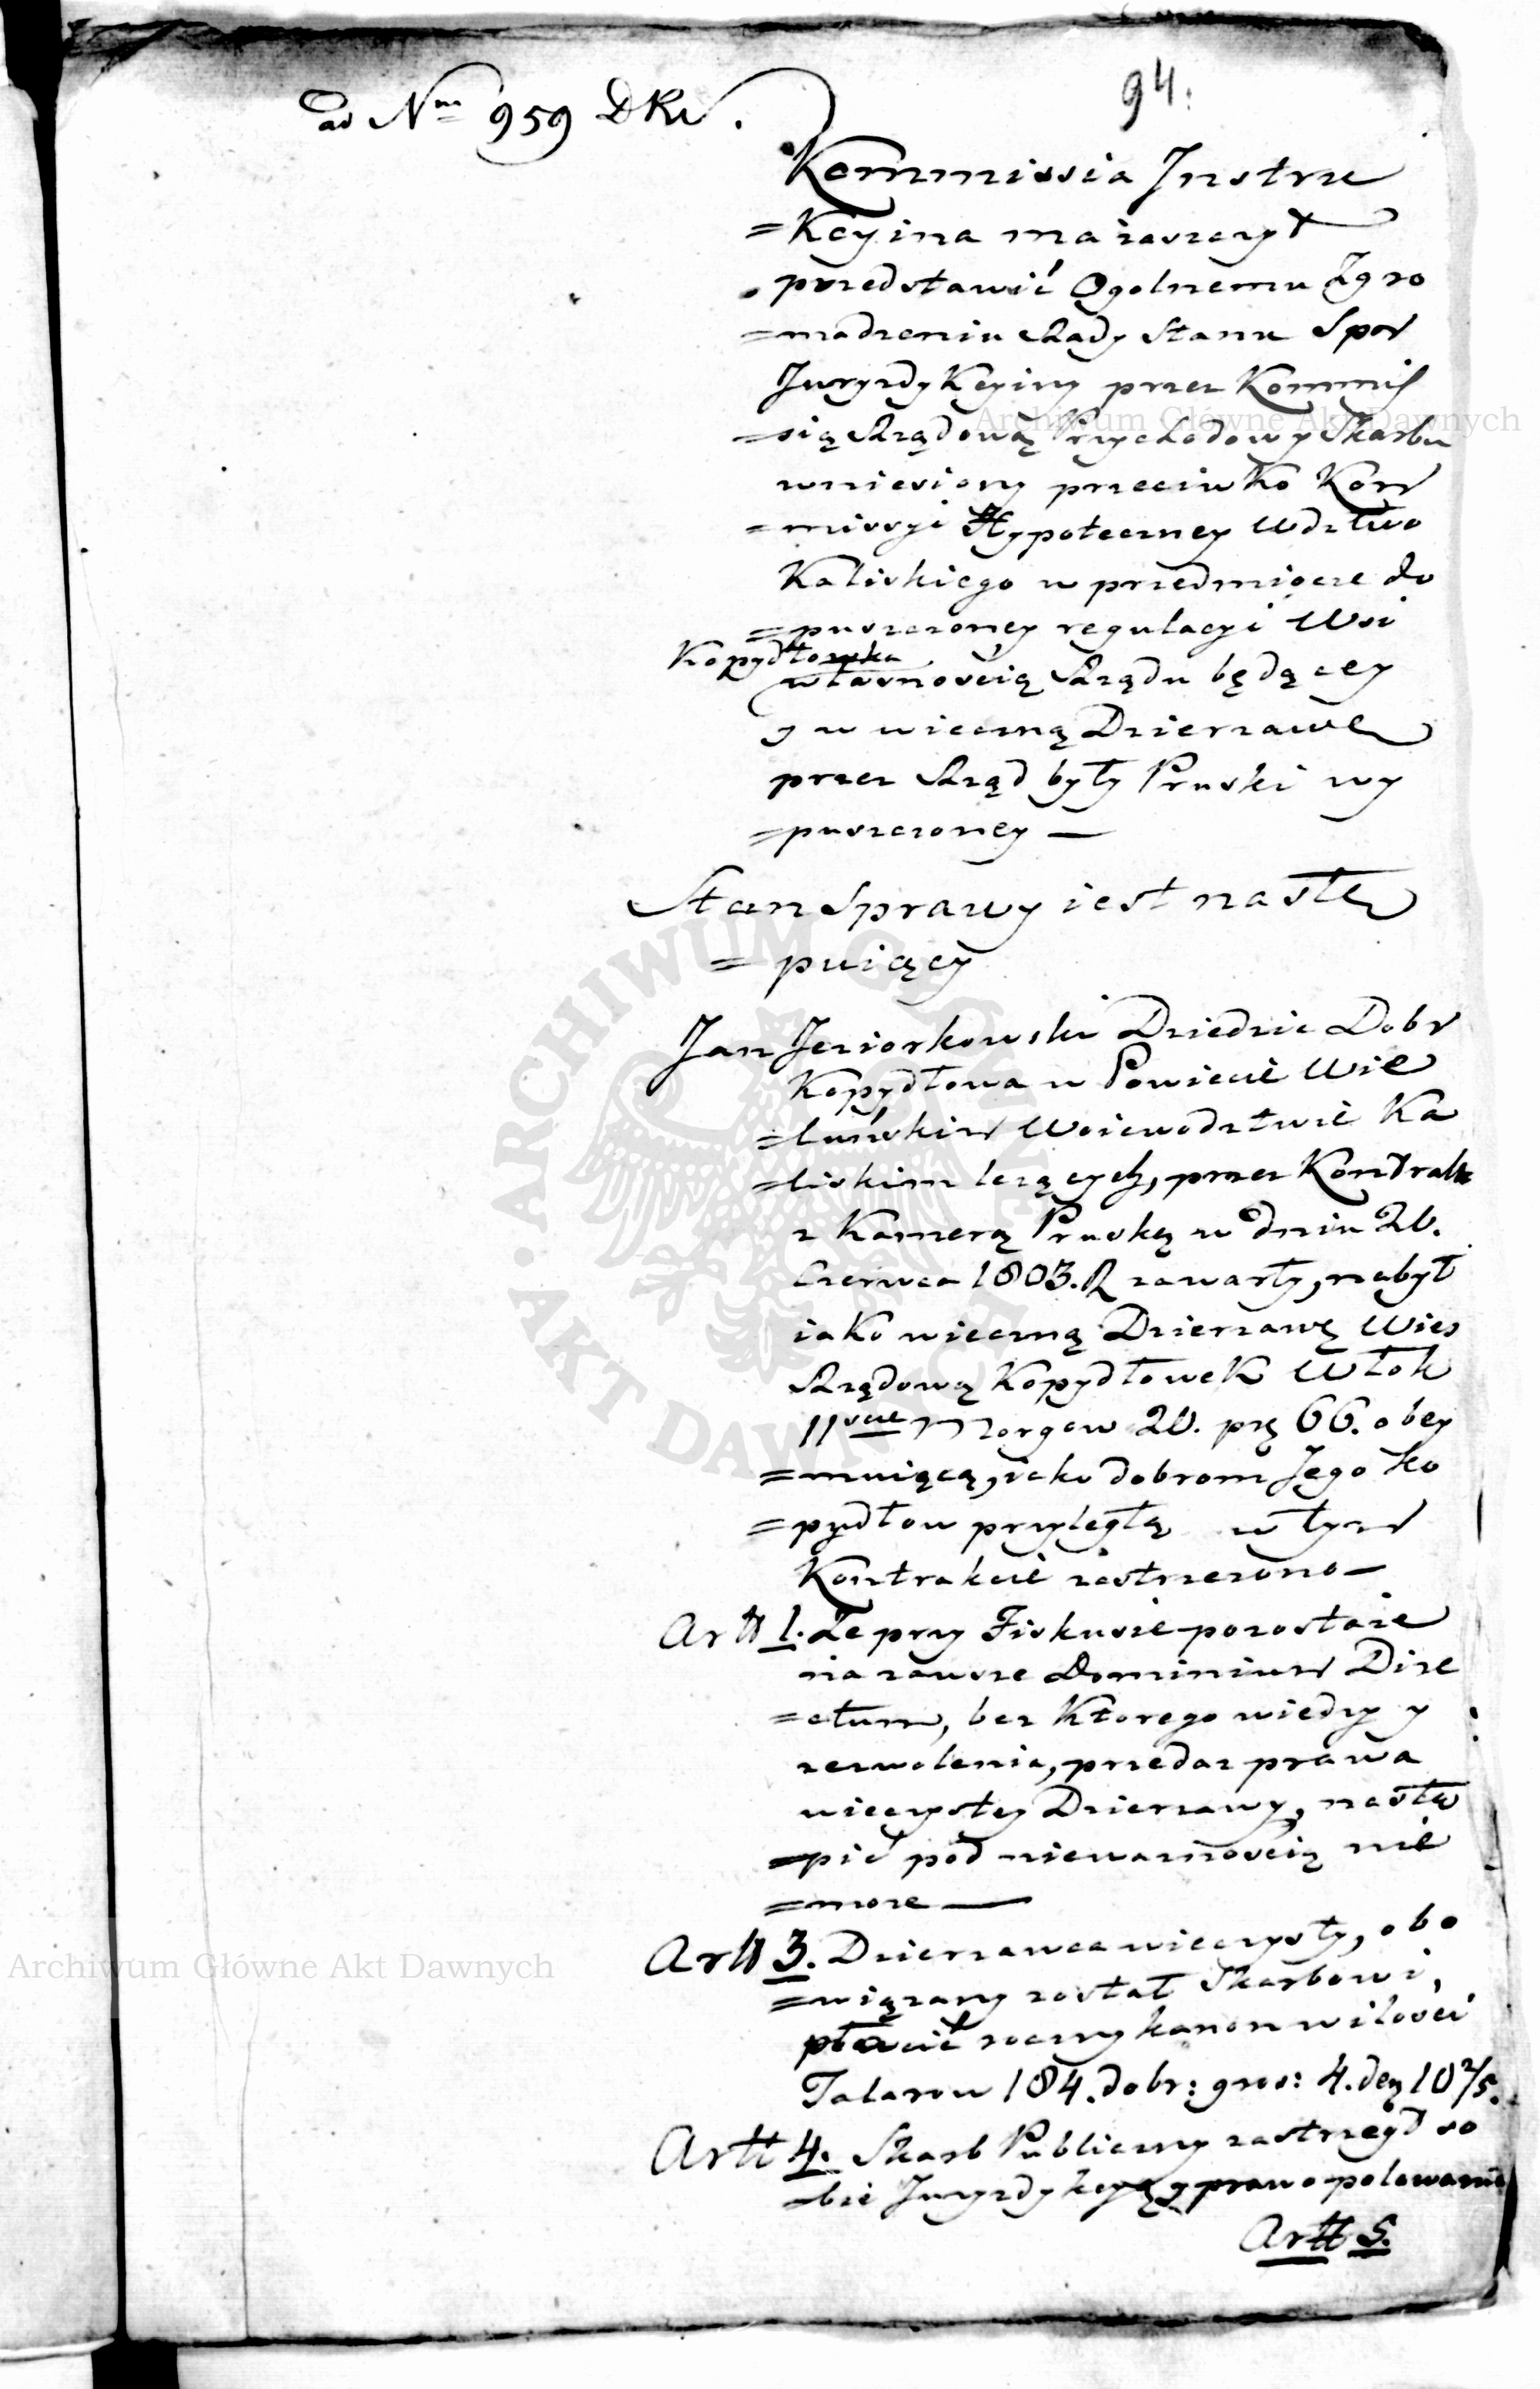 94.
ad Nm 959 DKW.
Kommissia Jnstru
=Kcyina ma zaszczyt
przedstawić Ogolnemu Zgro
=madzeniu Rady Stanu Spor
Juryzdykcyiny przez Kommis
=sią Rządową Przychodow y Skarbu
wniesiony przeciwko Kom
=missyi Hypoteczney Wdztwo
Kaliskiego w przedmiocie do
=puszczoney regulacyi Wsi
Kopydłowka
własnością Rządu będącey
y w wieczną Dzierzawę
przez Rząd były Pruski wy
=puszczoney —
Stan Sprawy iest nastę
=puiący
Jan Jeziorkowski Dziedzic Dobr
Kopydłowa w Powiecie Wie
=luńskim Woiewodztwie Ka
=liskim leżących, przez Kontrakt
z Kamerą Pruską w dniu 20.
Czerwca 1803. R zawarty, nabył
iako wieczną Dzierzawę Wies
Rządową Kopydłowek Włok
11ście Morgow 20. prę 66. obey
=muiącą, iako dobrom Jego Ko
=pydłow przyległą w tym
Kontrakcie zastrzezono—
Artt 1. Ze przy Fiskusie pozostaie
na zawsze Dominium Dire
=ctum, bez Ktorego wiedzy y
zezwolenia, przedaz prawa
wieczystey Dzierzawy, nastę
=pić pod niewaznością nie
=moze —
Artt 3. Dzierzawca wieczysty, obo
=wiązany został Skarbowi,
płacić roczny kanon w ilości
Talarow 184. dobr: gros: 4. den 10 2/5.
Artt 4. Skarb Publiczny zastrzegł so
=bie Juryzdykcyą y prawo polowania
Artt 5.
Archiwum Główne Akt Dawnych
ARCHIWUM GŁÓWNE AKT DAWNYCH
Archiwum Główne Akt Dawnych